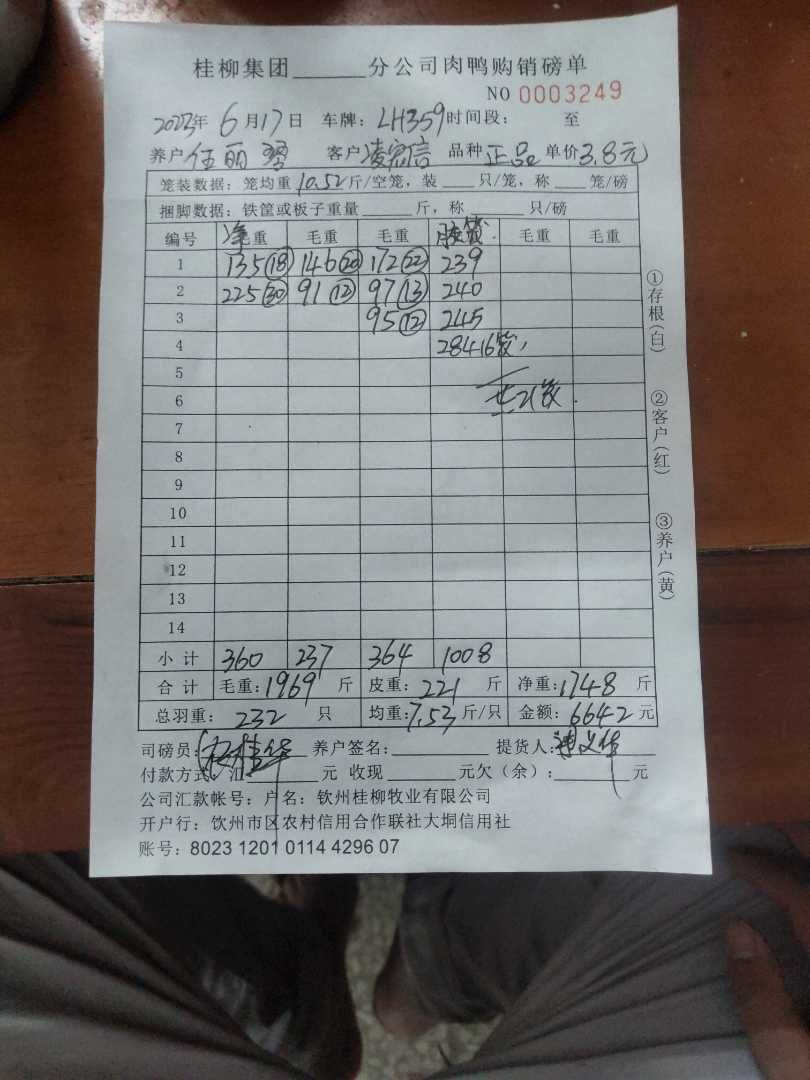 桂柳集团______分公司肉鸭购销磅单
NO 0003249
2023年 6月17日 车牌：LH359 时间段： 至
养户 伍丽 客户 凌宗信 品种 正品 单价 3.8元
笼装数据：笼均重 10.52 斤/空笼，装____只/笼，称____笼/磅
捆脚数据：铁筐或板子重量______斤，称______只/磅
编号 净毛重 毛重 毛重 胶笼 毛重 毛重
1 135⑱ 146⑳ 172㉒ 239
2 225㉚ 91⑫ 97⑬ 240
3 95⑫ 245
4 284 16笼
5
6 共21笼
7
8
9
10
11
12
13
14
小计 360 237 364 1008
合计 毛重：1969 斤 皮重：221 斤 净重：1748 斤
总羽重：232 只 均重：7.53 斤/只 金额：6642 元
司磅员： 养户签名：________ 提货人：
付款方式：汇______元 收现______元欠（余）：______元
公司汇款帐号：户名：钦州桂柳牧业有限公司
开户行：钦州市区农村信用合作联社大垌信用社
账号：8023 1201 0114 4296 07
①存根（白）
②客户（红）
③养户（黄）